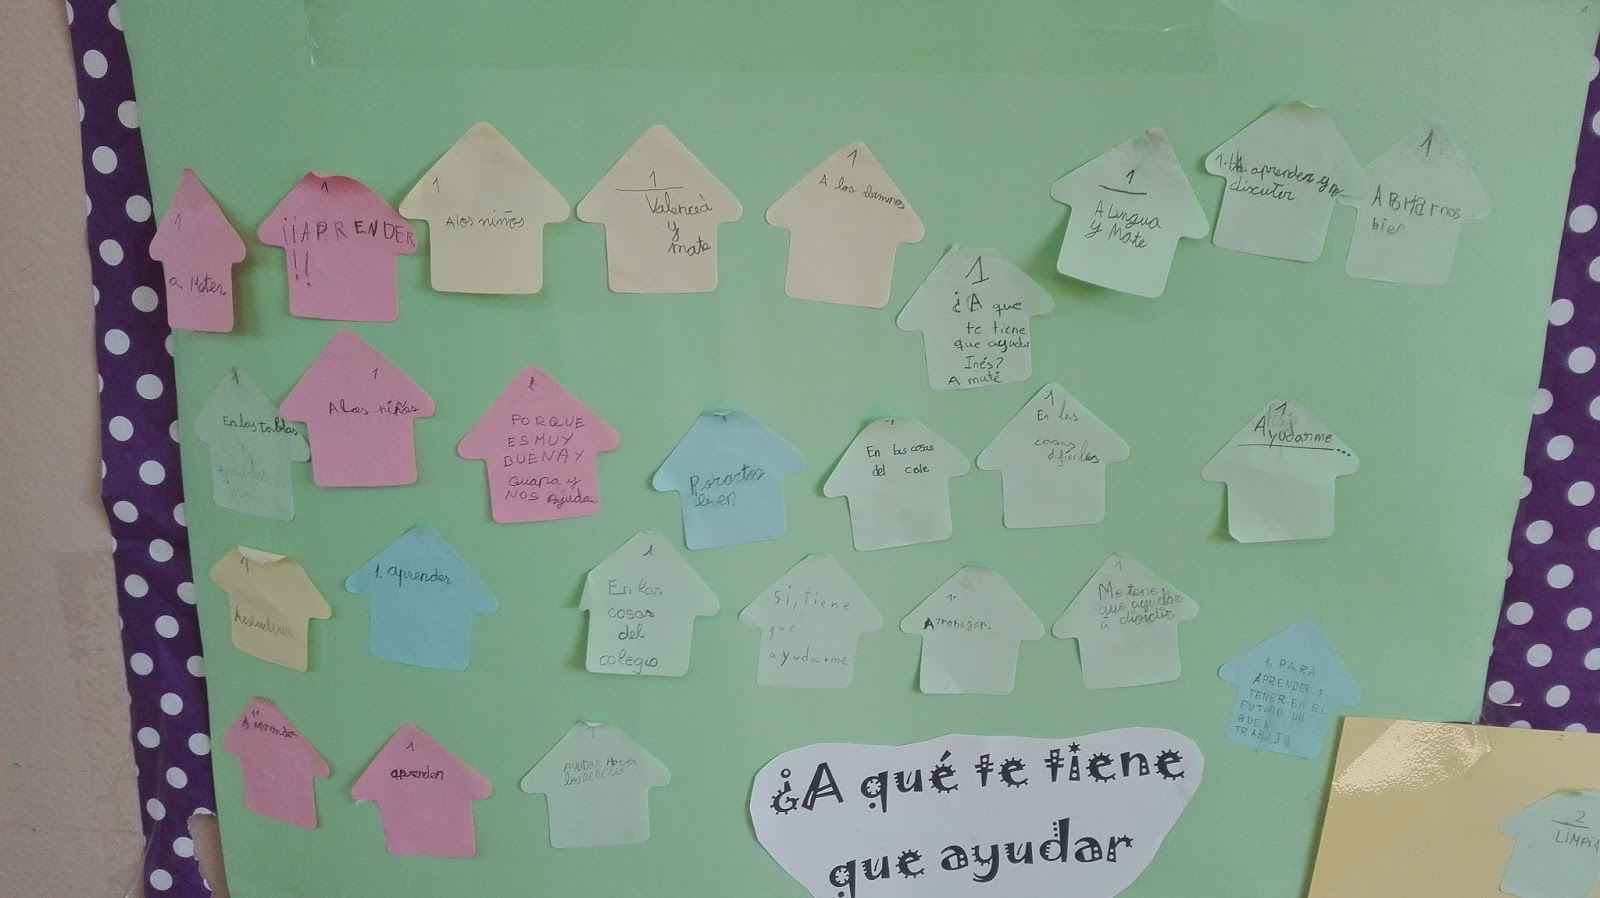 1
a Mates
1
¡¡APRENDER
!!
1
A los niños
1
Valencià
y
mate
1
A los
1
A Lengua
y Mate
1.
aprender y
discutir
1
bien
1
¿A que
te tiene
que ayudar
Inés?
A mate
1
En las tablas
y
1
A los niños
1
PORQUE
ES MUY
BUENA Y
GUAPA Y
NOS Ayuda
1
1
En las cosas
del cole
1
En las
cosas
difíciles
1
Ayudarme...
1
A estudiar
1. aprender
1
En las
cosas
del
colegio
Si, tiene
que
ayudarme
1.
A trabajar
1
Me tiene
que ayudar
a dividir
1. PARA
APRENDER Y
TENER EN EL
FUTURO UN
BUEN
TRABAJO
1º
A aprender
1
aprender
1
AYUDAR Hacer
los DEBERES
¿A qué te tiene
que ayudar
2
LIMPIA